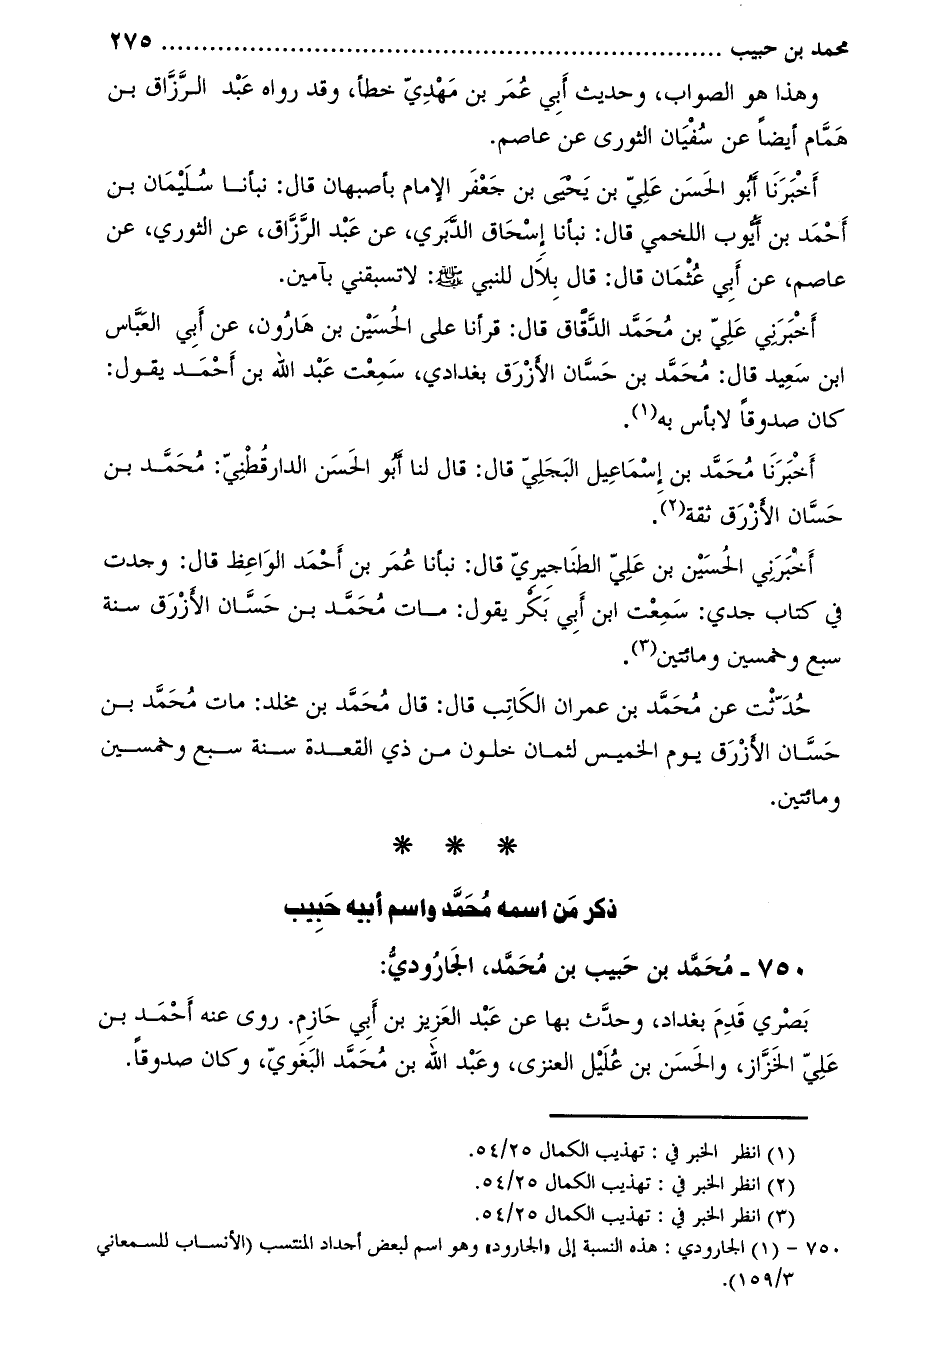 محمد بن حبيب ................................................................ ٢٧٥
وهذا هو الصواب، وحديث أَبِي عُمَر بن مَهْدِيّ خطأ، وقد رواه عَبْد الـرَّزَّاق بـن
هَمَّام أيضاً عن سُفْيَان الثورى عن عاصم.
أَخْبَرَنَا أَبُو الحَسَن عَلِيّ بن يَحْيَى بن جَعْفَر الإمام بأصبهان قال: نبأنـا سُـلَيْمَان بـن
أَحْمَد بن أَيُّوب اللخمي قال: نبأنا إِسْحَاق الدَّبَري، عن عَبْد الرَّزَّاق، عن الثوري، عن
عاصم، عن أَبِي عُثْمَان قال: قال بِلَال للنبي ﷺ: لاتسبقني بآمين.
أَخْبَرَنِي عَلِيّ بن مُحَمَّد الدَّقَّاق قال: قرأنا على الحُسَيْن بن هَارُون، عن أَبِي العَبَّاس
ابن سَعِيد قال: مُحَمَّد بن حَسَّان الأَزْرَق بغدادي، سَمِعْت عَبْد الله بن أَحْمَـد يقـول:
كان صدوقاً لابأس به(١).
أَخْبَرَنَا مُحَمَّد بن إِسْمَاعِيل البَجَلِيّ قال: قال لنا أَبُو الحَسَن الدارقُطْنِيّ: مُحَمَّـد بـن
حَسَّان الأَزْرَق ثقة(٢).
أَخْبَرَنِي الحُسَيْن بن عَلِيّ الطَنَاجِيرِيّ قال: نبأنا عُمَر بن أَحْمَد الوَاعِظ قال: وجدت
في كتاب جدي: سَمِعْت ابن أَبِي بَكْر يقول: مـات مُحَمَّـد بـن حَسَّـان الأَزْرَق سـنة
سبع وخمسين ومائتين(٣).
حُدِّثْت عن مُحَمَّد بن عمران الكَاتِب قال: قال مُحَمَّد بن مخلد: مات مُحَمَّد بـن
حَسَّـان الأَزْرَق يـوم الخميـس لثمـان خلـون مـن ذي القعـدة سـنة سـبع وخمسـين
ومائتين.
* * *
ذكر مَن اسمه مُحَمَّد واسم أبيه حَبِيب
٧٥٠ ـ مُحَمَّد بن حَبيب بن مُحَمَّد، الجَارُوديُّ:
بَصْرِي قَدِمَ بغداد، وحدَّث بها عن عَبْد العَزِيز بن أَبِي حَازِم. روى عنه أَحْمَـد بـن
عَلِيّ الخَزَّاز، والحَسَن بن عُلَيْل العنزى، وعَبْد الله بن مُحَمَّد البَغَويّ، وكان صدوقاً.
(١) انظر الخبر في : تهذيب الكمال ٥٤/٢٥.
(٢) انظر الخبر في : تهذيب الكمال ٥٤/٢٥.
(٣) انظر الخبر في : تهذيب الكمال ٥٤/٢٥.
٧٥٠ – (١) الجارودي : هذه النسبة إلى «الجارود» وهو اسم لبعض أحداد المنتسب (الأنسـاب للسـمعاني
١٥٩/٣).